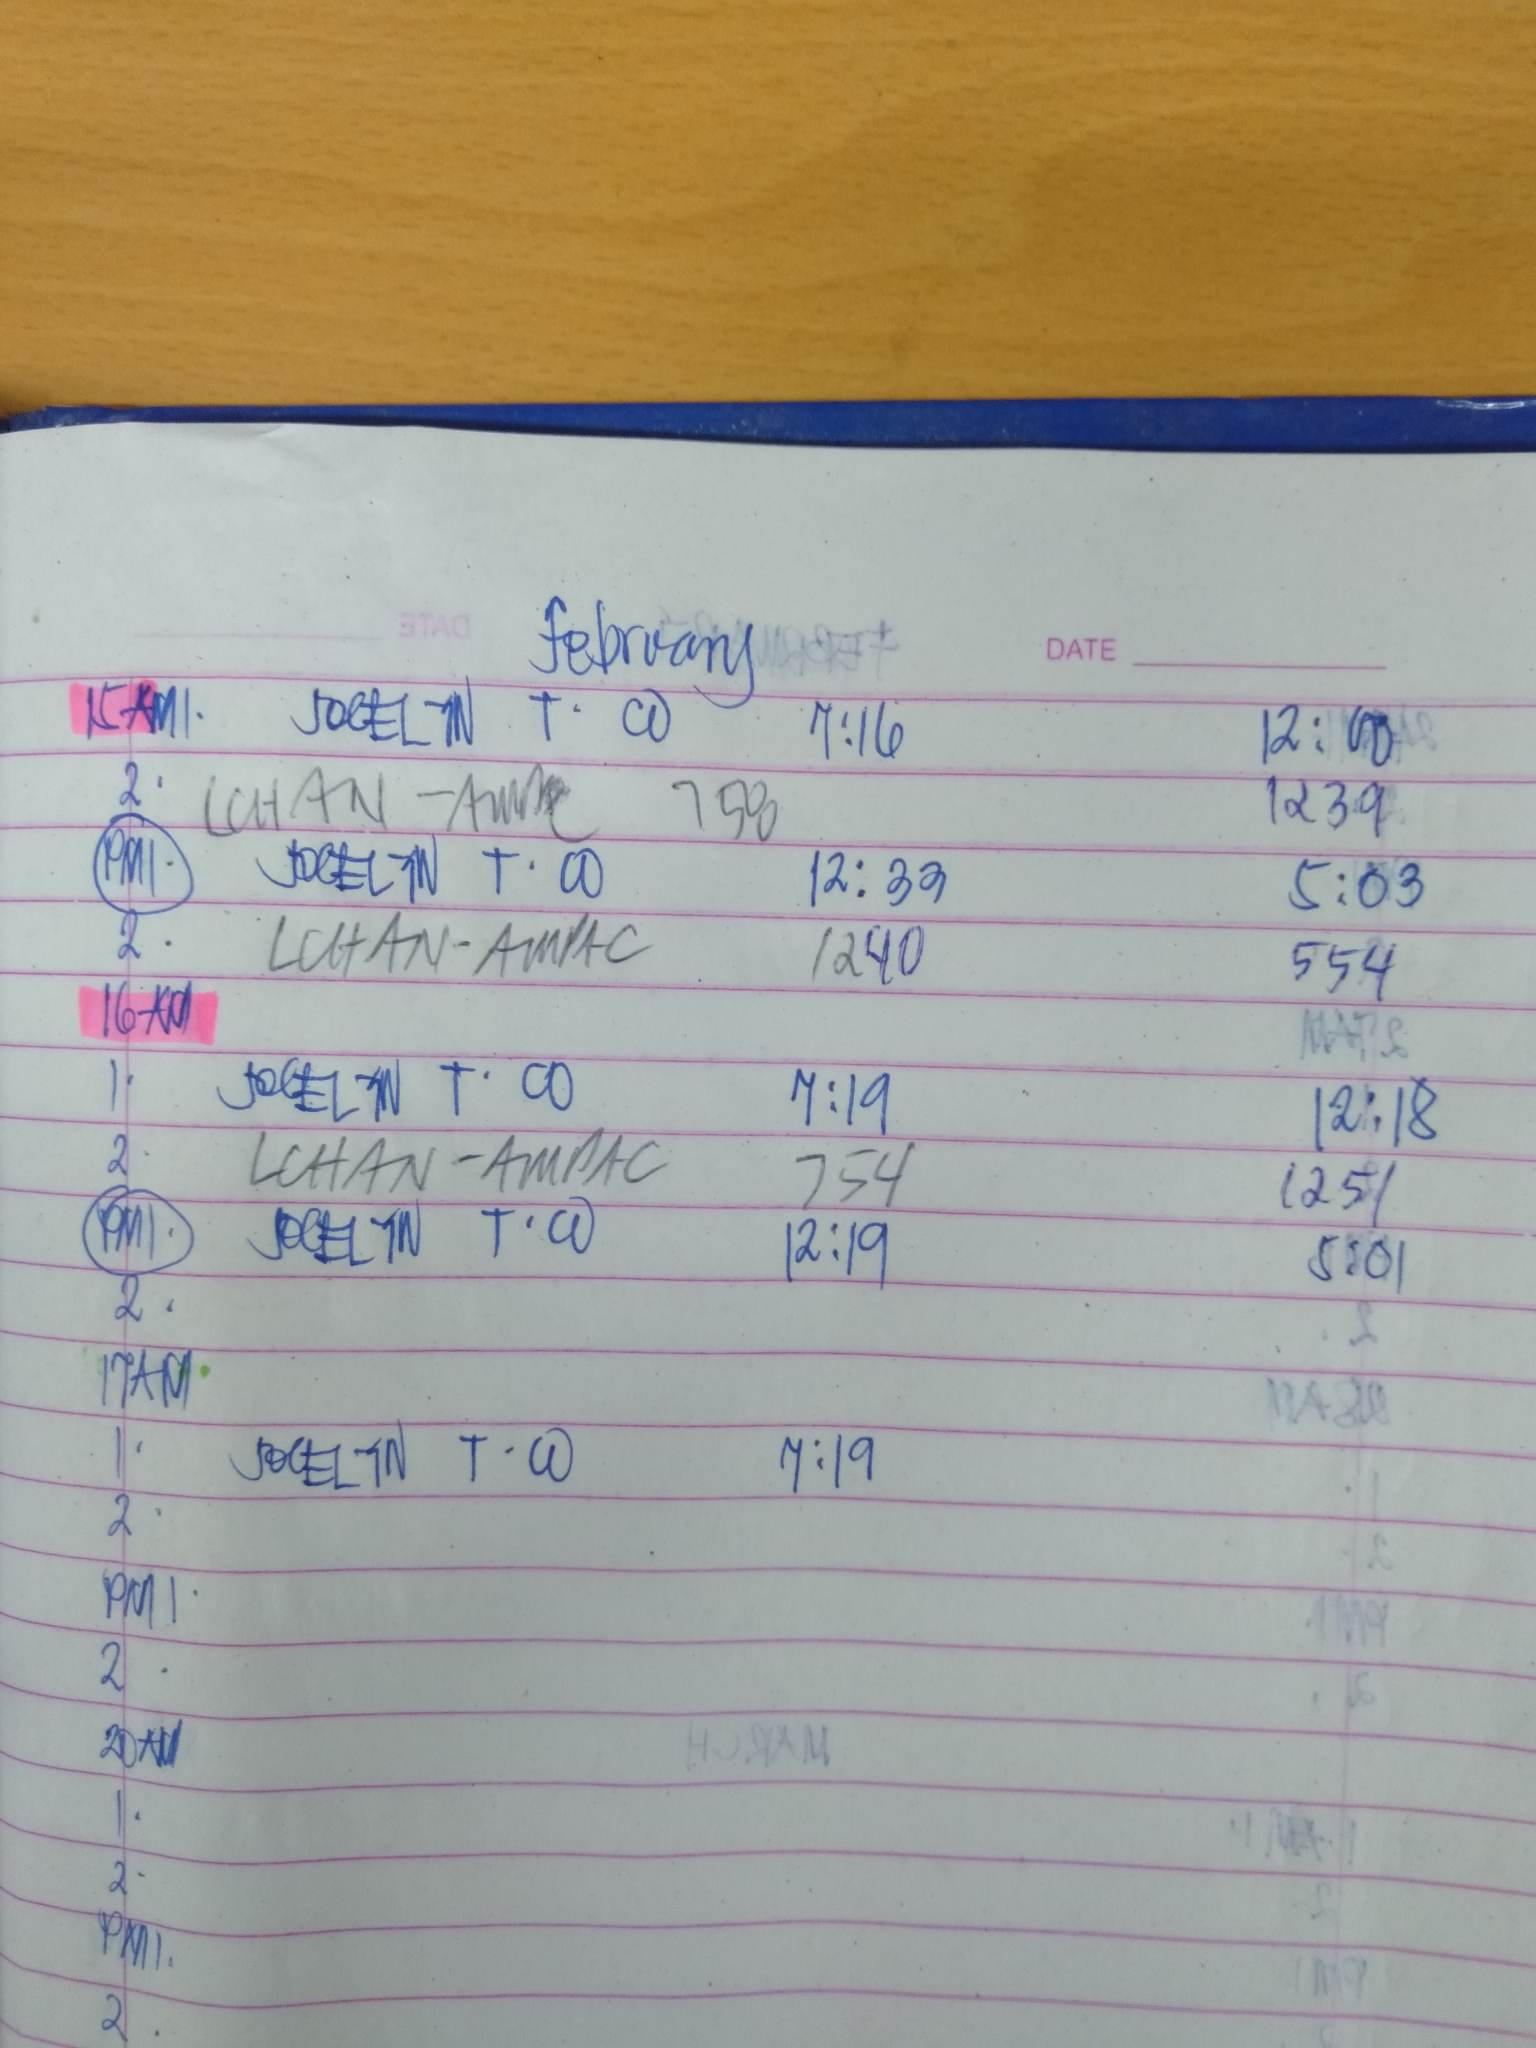 February
DATE
15 AM 1. JOCELYN T. CO 7:16 12:00
2. LCHAN-AMPAC 758 1239
PM 1. JOCELYN T. CO 12:33 5:03
2. LCHAN-AMPAC 1240 554
16 AM
1. JOCELYN T. CO 7:19 12:18
2. LCHAN-AMPAC 754 1251
PM 1. JOCELYN T. CO 12:19 5:01
2.
17 AM
1. JOCELYN T. CO 7:19
2.
PM 1.
2.
20 AM
1.
2.
PM 1.
2.